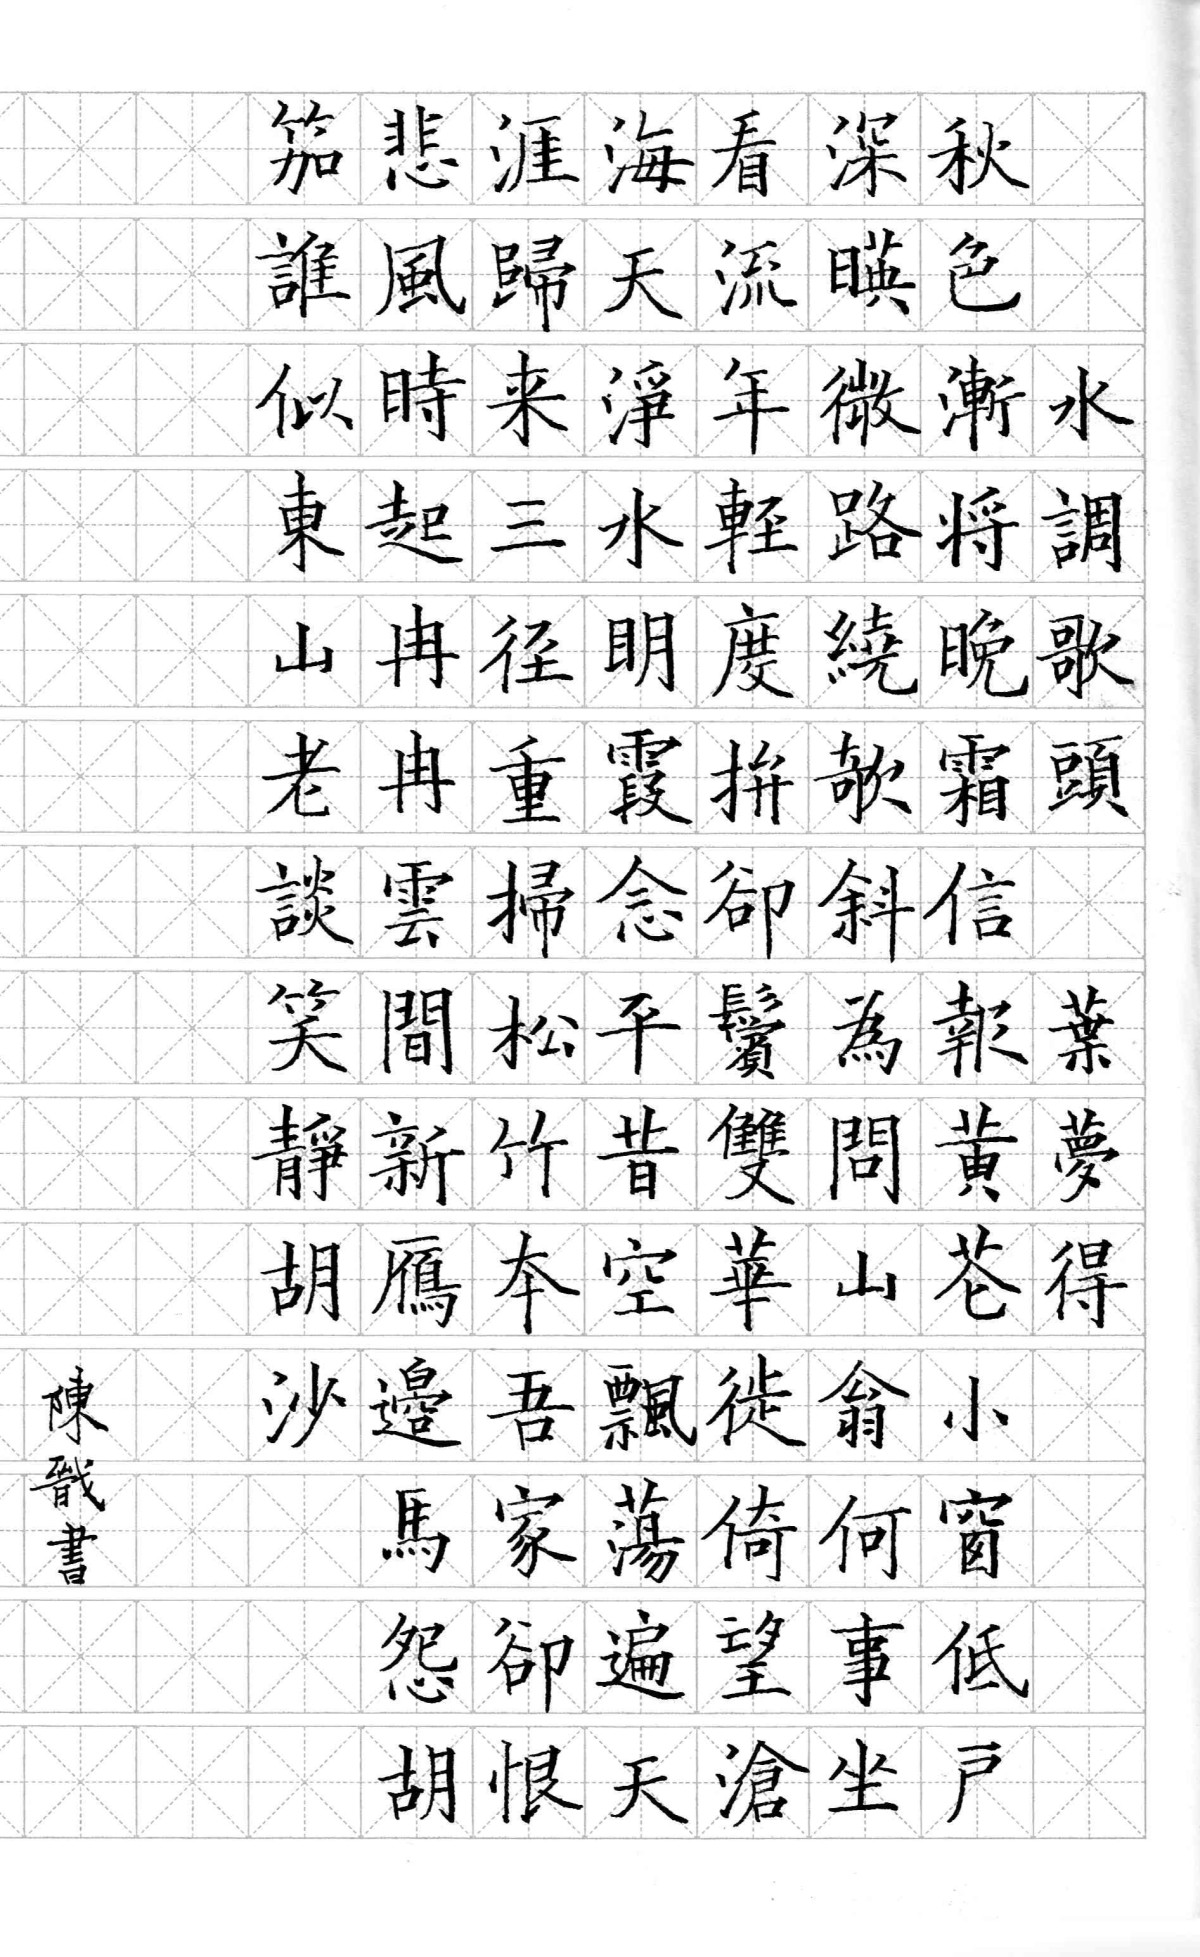 水調歌頭 葉夢得
秋色漸将晚霜信報黄苍小窗低戸
深暎微路繞欹斜為問山翁何事坐
看流年輕度拚卻鬢雙華徙倚望滄
海天淨水明霞念平昔空飄蕩遍天
涯歸来三径重掃松竹本吾家卻恨
悲風時起冉冉雲間新鴈邊馬怨胡
笳誰似東山老談笑靜胡沙
陳戩書